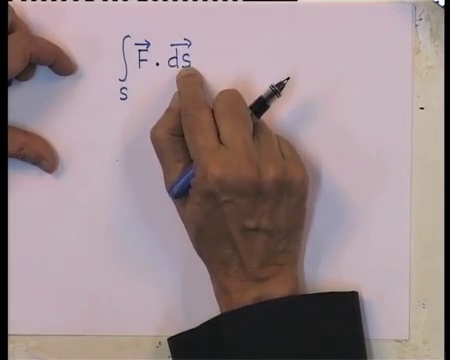 ∫_S F⃗ · d⃗s